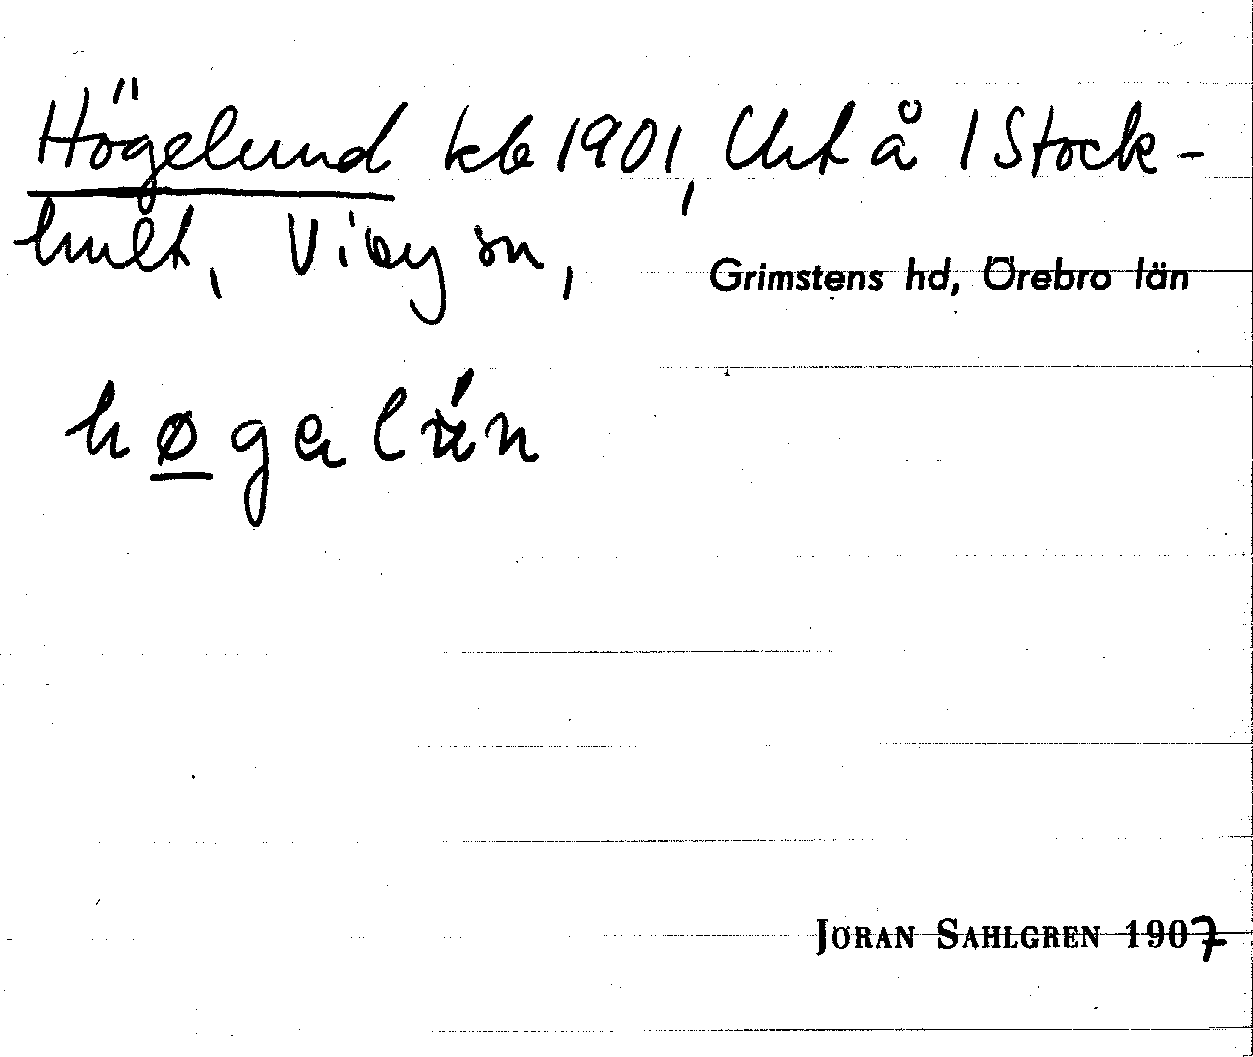 Högelund kb 1901, Uht å 1 Stock-
hult, Viby sn, Grimstens hd, Örebro län
høgalún
JÖRAN SAHLGREN 1907